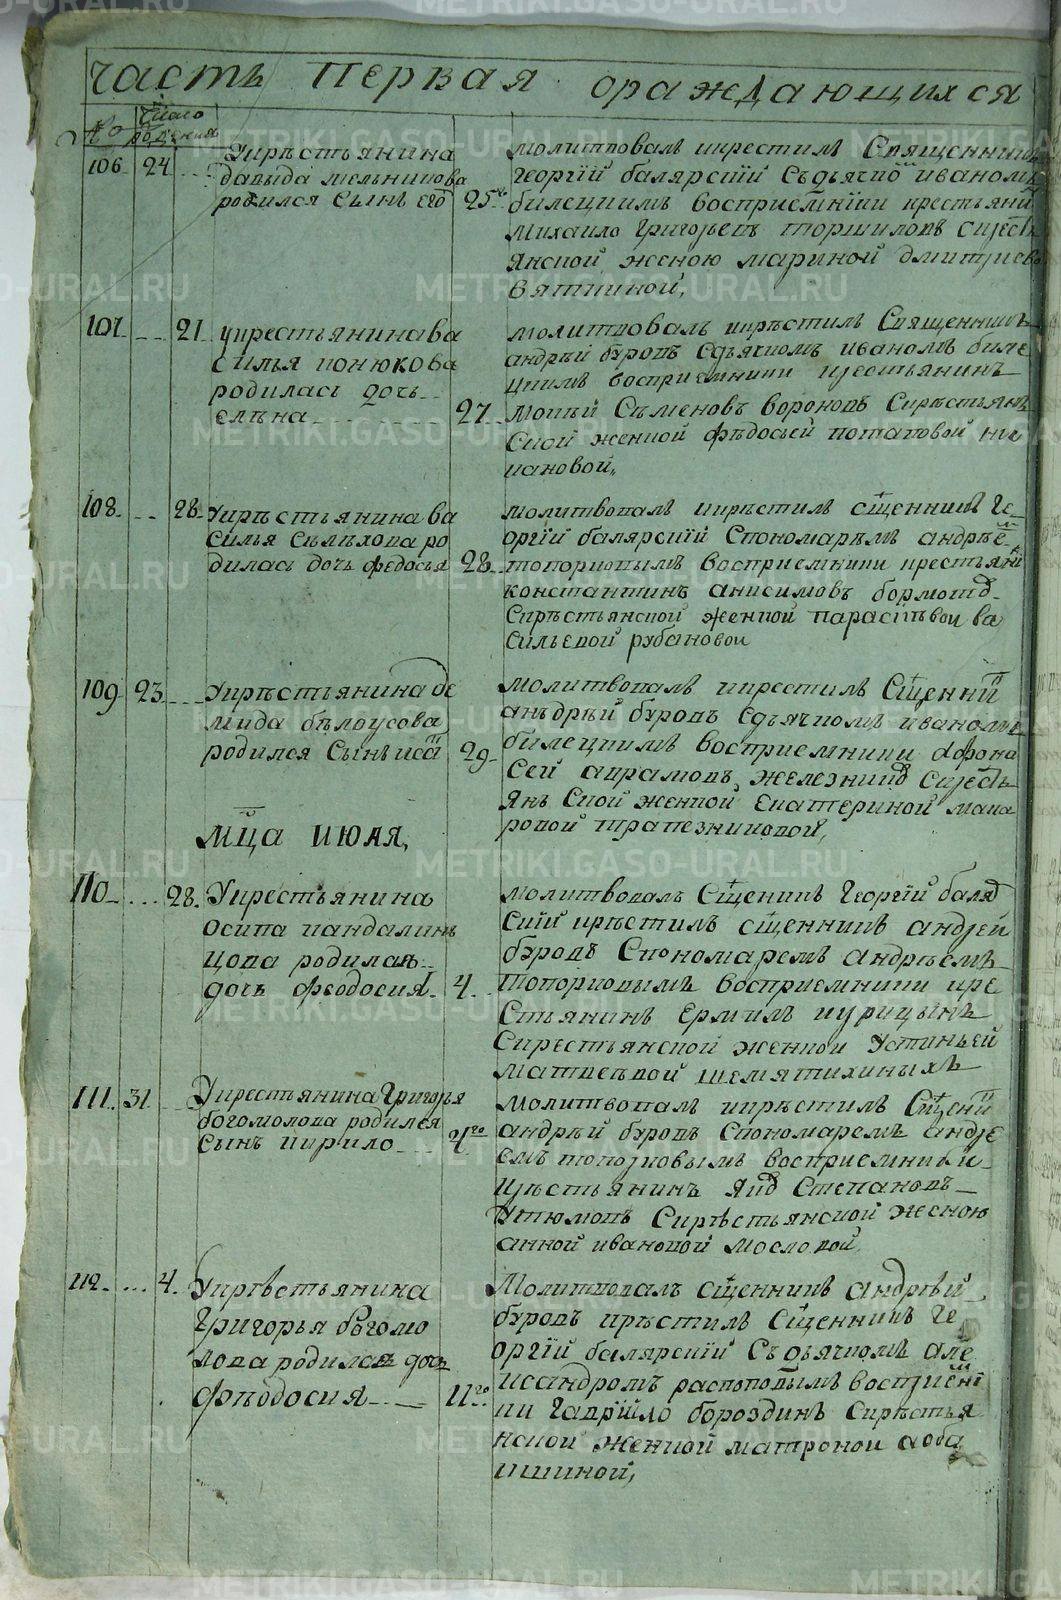 часть первая оражддающихся
№
число рождения
106 24
Укрѣстьянина
давыда мельникова
родился Сынъ его
25
молитвовалъ икрестилъ Священникъ
георгій балярскій Съдьячко иваномъ
билецкимъ восприемники крестьяни
Михаило григорьевъ торшиловъ
янской женою мариной дмитриево
Вяткиной,
107 21
укрестьянинава
силья конюкова
родилась дочь
елѣна
27
молитвовалъ икрѣстилъ Священникъ
андрѣй буровъ Сдьячкомъ иваномъ биле
цкимъ восприемники крестьянинъ
Мокѣй Сѣменовъ вороновъ Скрѣстьян
ской женкой фѣдосьей потаповой
кановой,
108 28
Укрѣстьянина ва
силья Сѣлѣхова ро
дилась дочь федосья
28
молитвовалъ икрѣстилъ сщенникъ ге
оргій балярскій Спономарѣмъ андрѣе
топорковымъ восприемники крестьяни
константинъ анисимовъ
Скрѣстьянской женкой параскѣвои ва
сильевой рубановои
109 23
Укрѣстьянина де
мида бѣлоусова
родился Сынъ
29
молитвовалъ икрестилъ Сщенни
анъдрѣй буровъ Сдьячкомъ иваномъ
билецкимъ восприемники Афона
Сей аврамовъ железник
янъ Ской женкой Екатериной мака
ровой трапезниковой,
мца июля,
110 28
Укрестьянина
осипа кандалин
цова родилась
дочь феодосия
4
молитвовалъ Сщеникъ Георгій баляр
скій крѣстилъ сщенникъ андрей
буровъ Спономаремъ андрѣемъ
топорковымъ восприемники кре
стьянинъ ермилъ курицынъ
Скрестьянской женкои Устиньей
матвеевой шемятихиныхъ
111 31
Укрестьянина Григорья
богомолова родился
сынъ кирило
4го
молитвовалъ икрѣстилъ Сщени
андрѣй буровъ Спономаремъ андре
емъ топорковымъ восприемники
крѣстьянинъ Степановъ
Утюмовъ Скрѣстьянской женкою
анной ивановой мосло вой
112 4
Укрѣстьянина
Григорья богомо
лова родилась дочь
фѣодосия
11го
Молитвовалъ сщенникъ андрѣй
буровъ крѣстилъ Сщенникъ ге
оргій балярскій Съ дьячкомъ але
ксандромъ распоповымъ восприемни
ки гаврііло бороздинъ Скрѣстья
нскои женкой матронои лоба
шиной,
METRIKI.GASO-URAL.RU